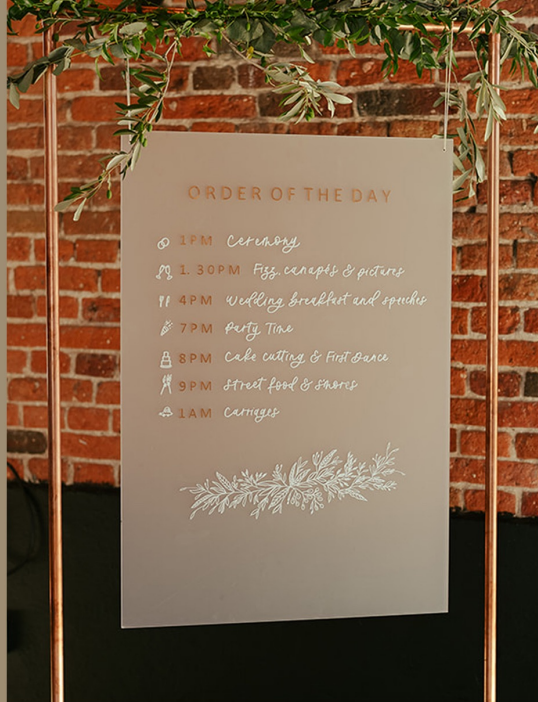 ORDER OF THE DAY
1PM Ceremony
1.30PM Fizz, canapés & pictures
4PM Wedding breakfast and speeches
7PM Party Time
8PM Cake cutting & First Dance
9PM Street food & S'mores
1AM Carriages